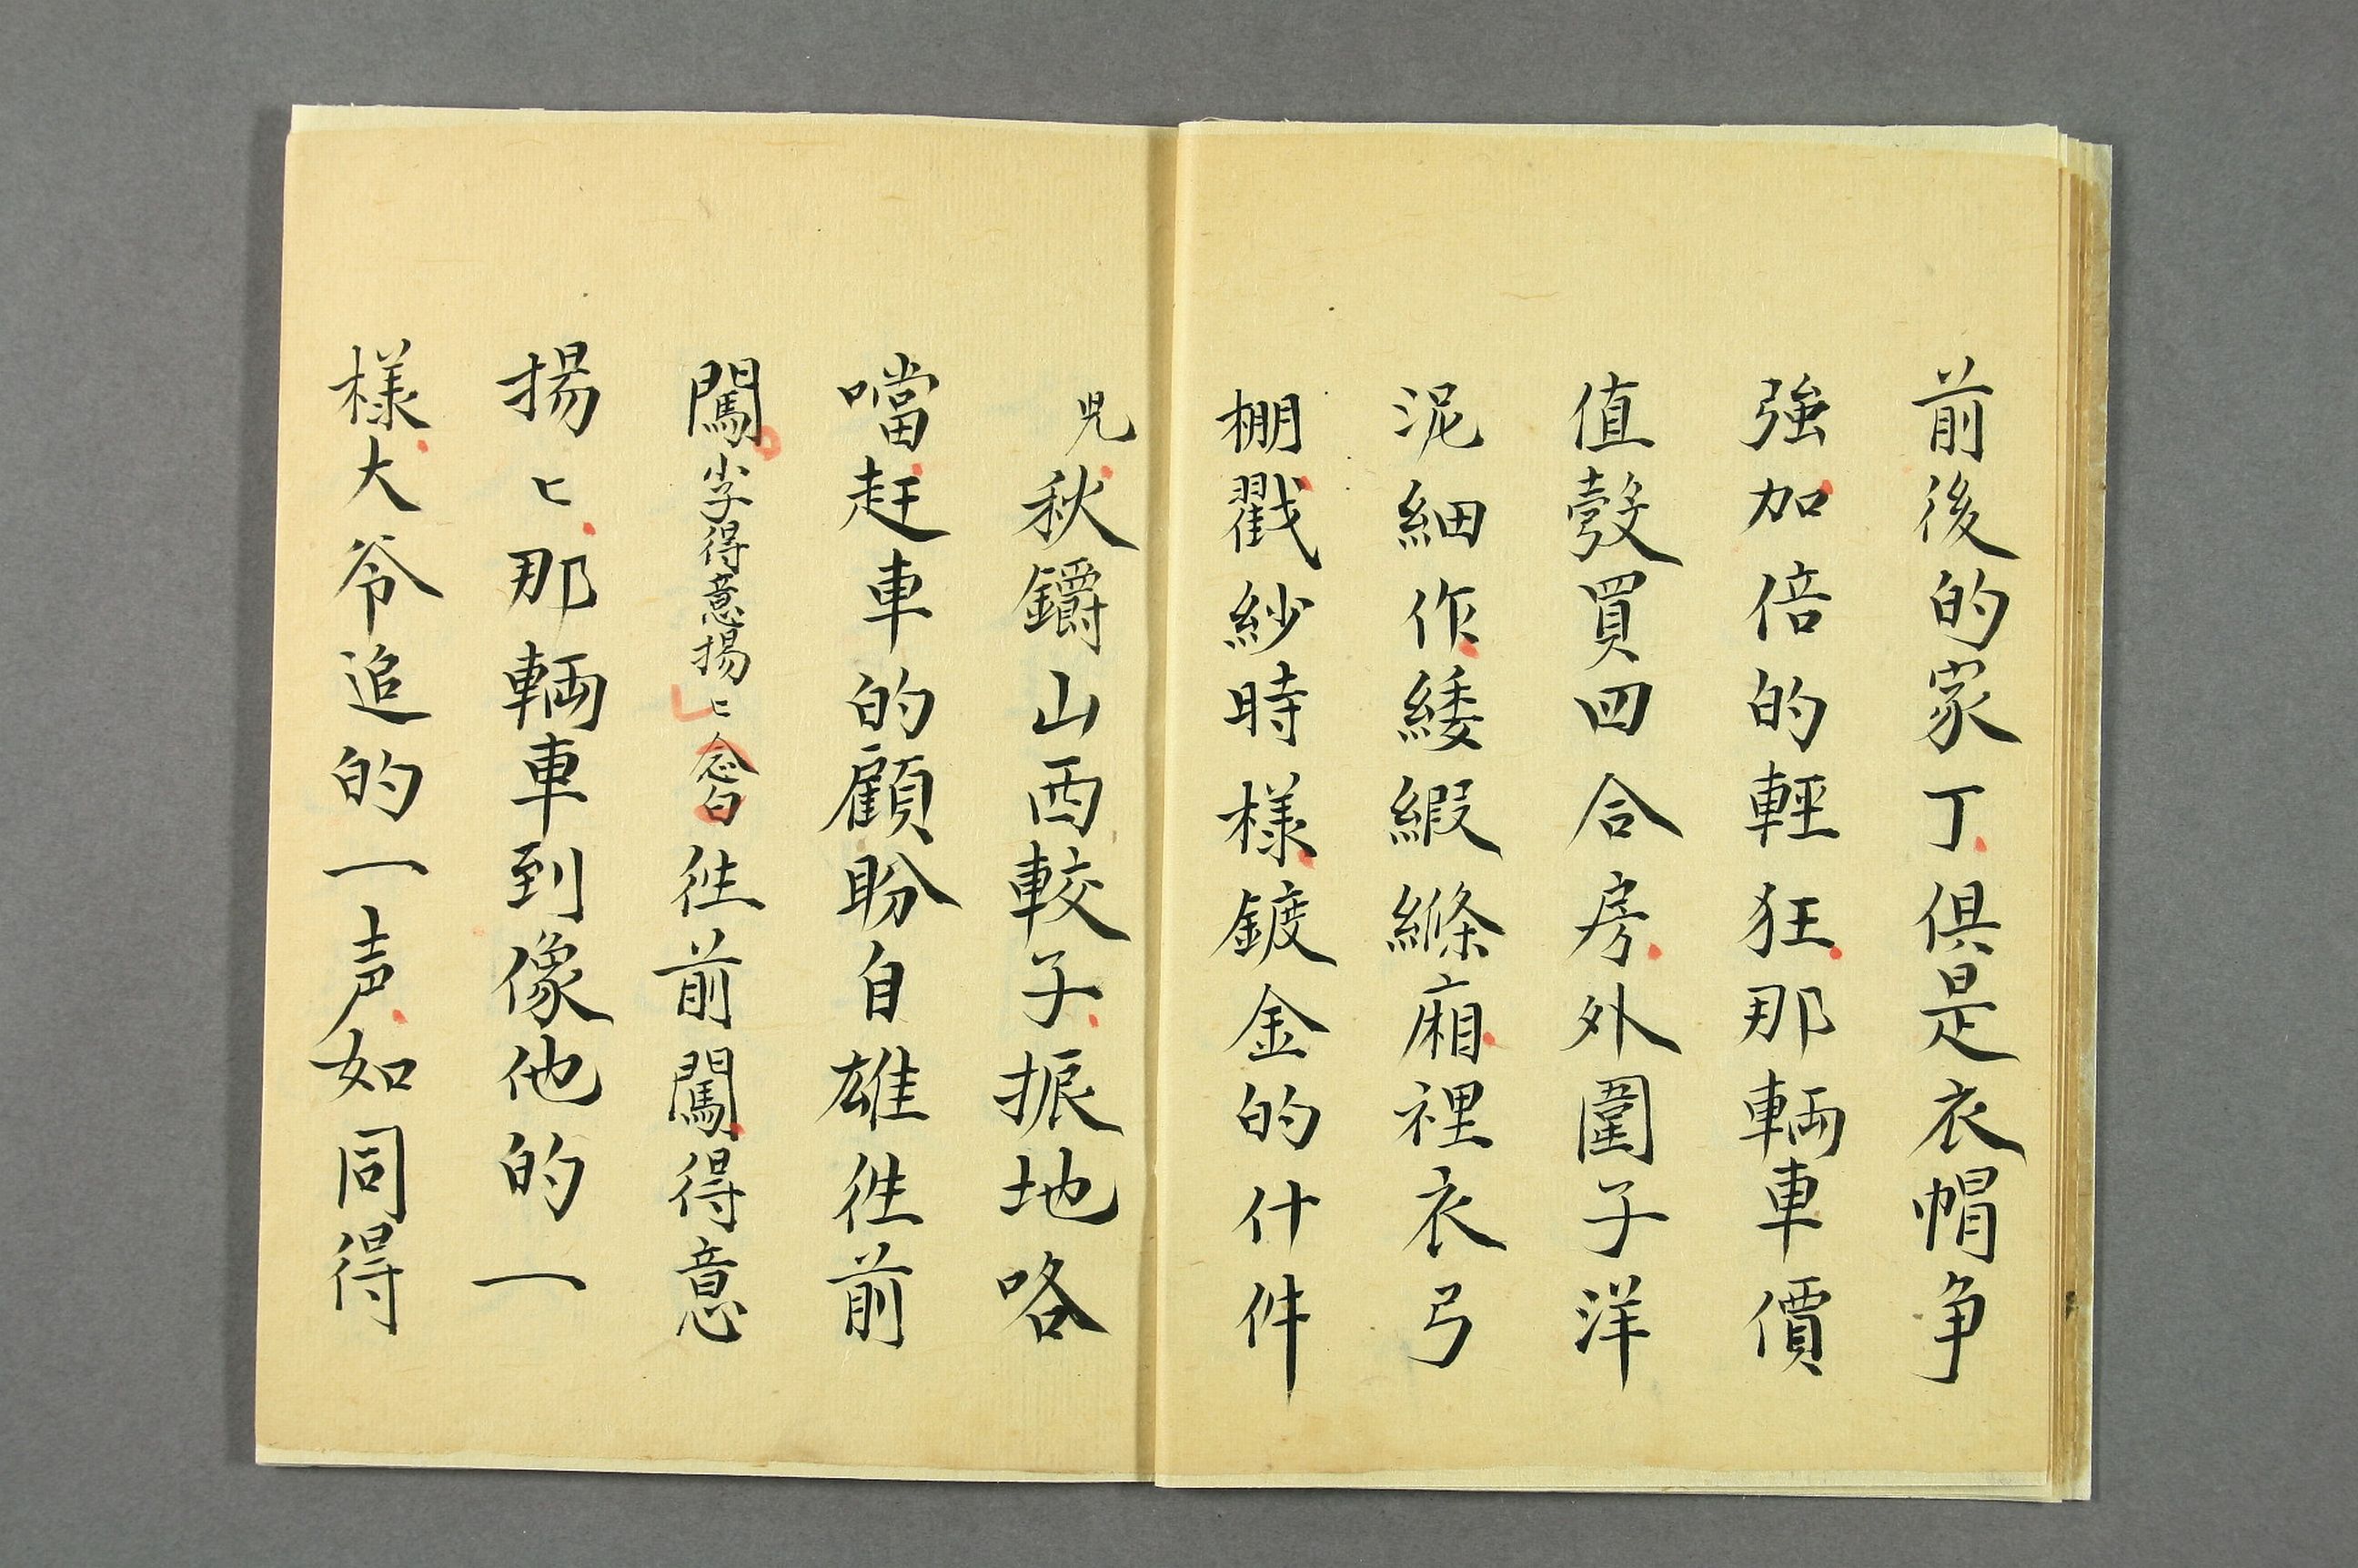 前後的家丁俱是衣帽争
強加倍的輕狂那輌車價
值彀買四合房外圍子洋
泥細作緌緞縧廂裡衣弓
棚戳紗時樣鍍金的什件
児秋鐗山西較子振地咯
噹赶車的顧盼自雄徃前
闖小字得意揚〻念白徃前闖得意
揚〻那輌車到像他的一
樣大爷追的一声如同得